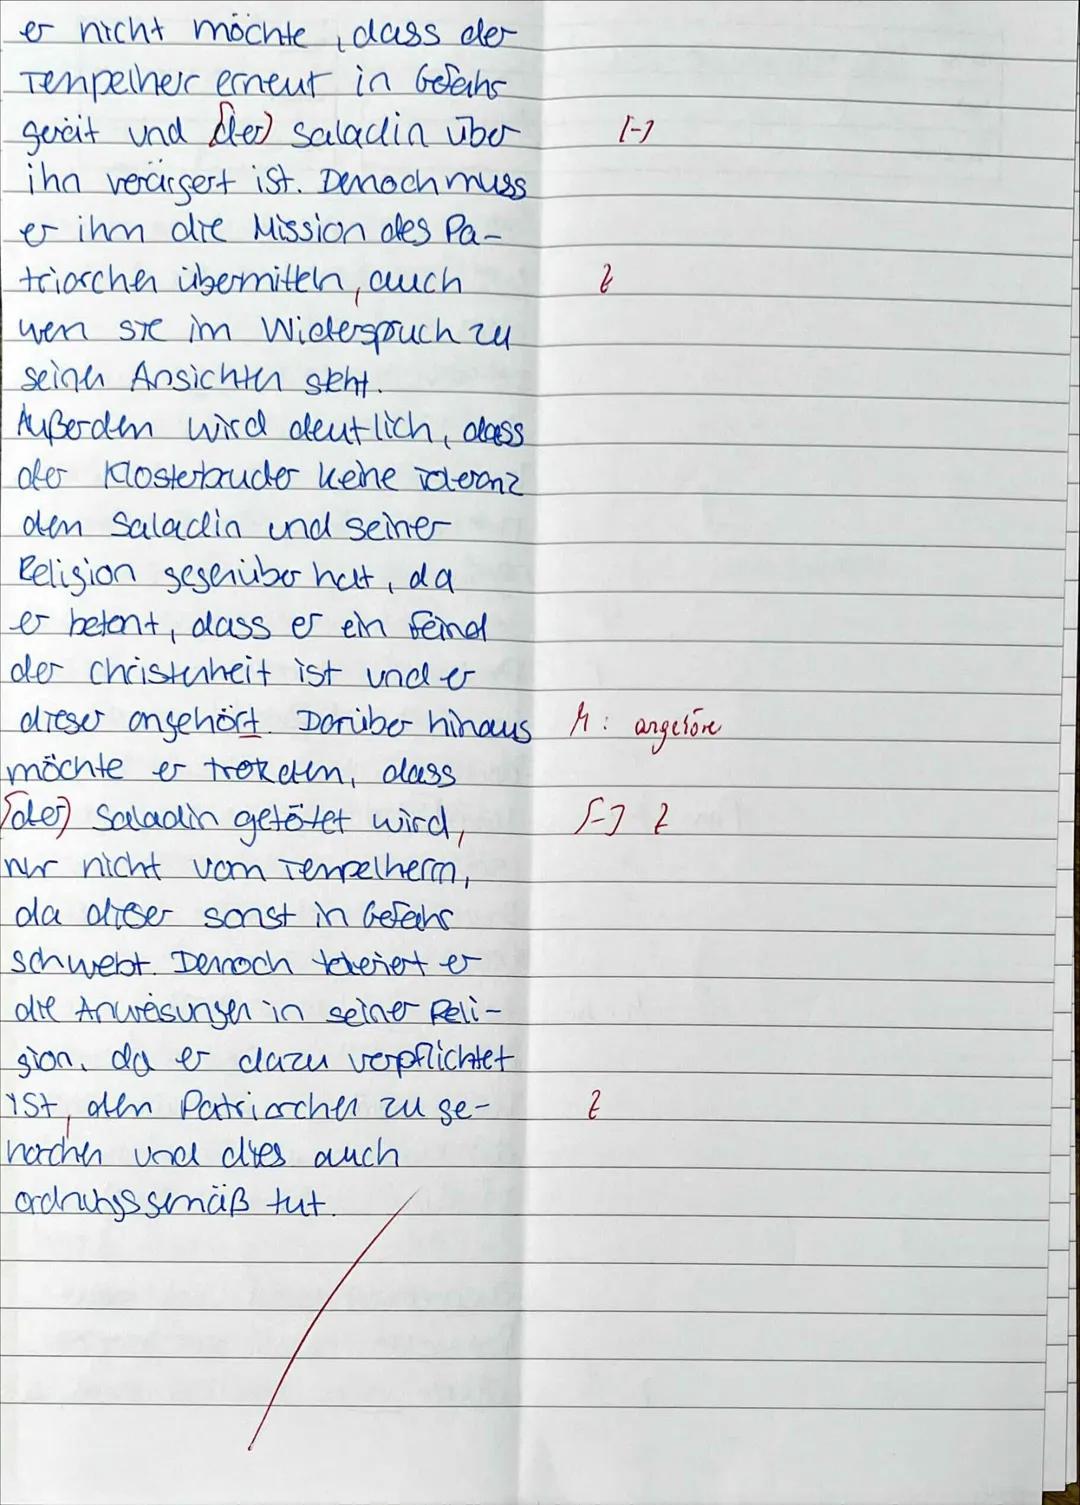 er nicht möchte, dass der
Tempelherr erneut in Gefahr
gerät und [der] Saladin über [-]
ihn verärgert ist. Denoch muss
er ihm die Mission des Pa-
triarchen übermitteln, auch Z
wen sie im Wiederspruch zu
seinen Ansichten steht.
Außerdem wird deutlich, dass
der Klosterbruder keine Toleranz
dem Saladin und seiner
Religion gegenüber hat, da
er betont, dass er ein Feind
der Christenheit ist und er
dieser angehört. Darüber hinaus M: angehöre
möchte er trotzdem, dass
[der] Saladin getötet wird, [-] Z
nur nicht vom Tempelherrn,
da dieser sonst in Gefahr
schwebt. Dennoch toleriert er
die Anweisungen in seiner Reli-
gion, da er dazu verpflichtet
ist, dem Patriarchen zu ge- Z
horchen und dies auch
ordnungsgemäß tut.